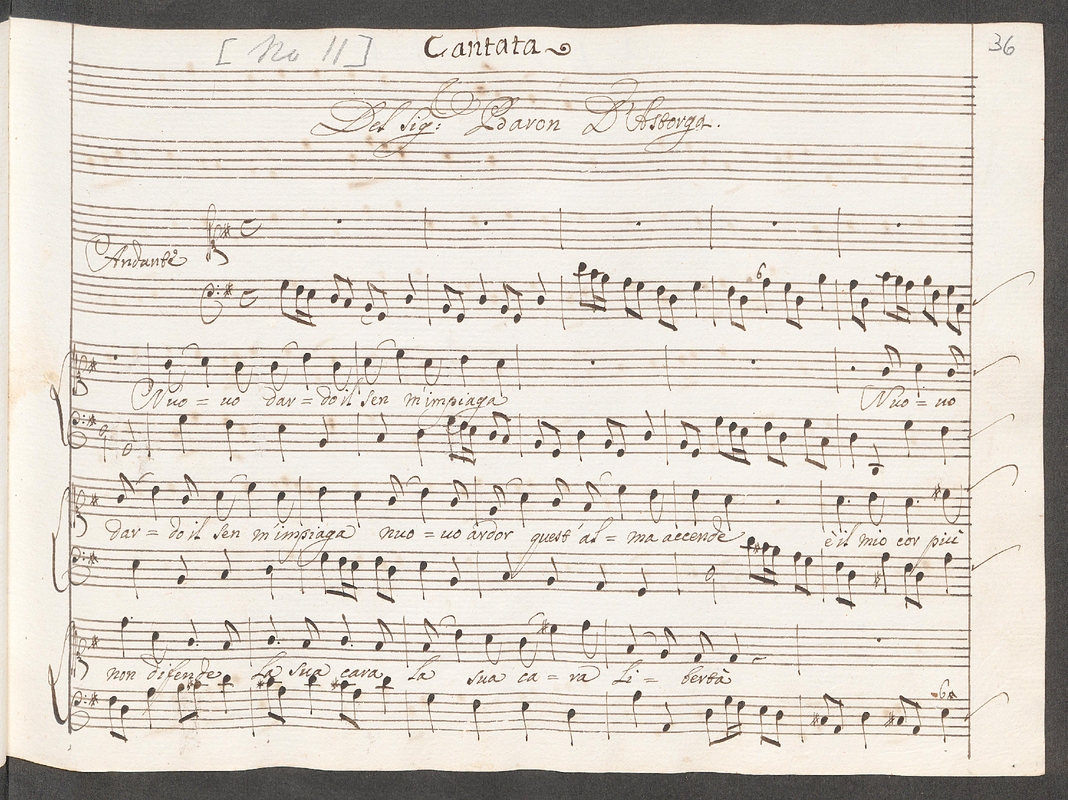 [No 11]
Cantata
36
Del Sig: Baron D'Astorga.
Andante
6
Nuo = uo dar = do il sen m'impiaga Nuo = uo
dar = do il sen m'impiaga nuo = uo ardor quest' al = ma accende è il mio cor più
non difende la sua cara la sua ca = ra li = bertà
6